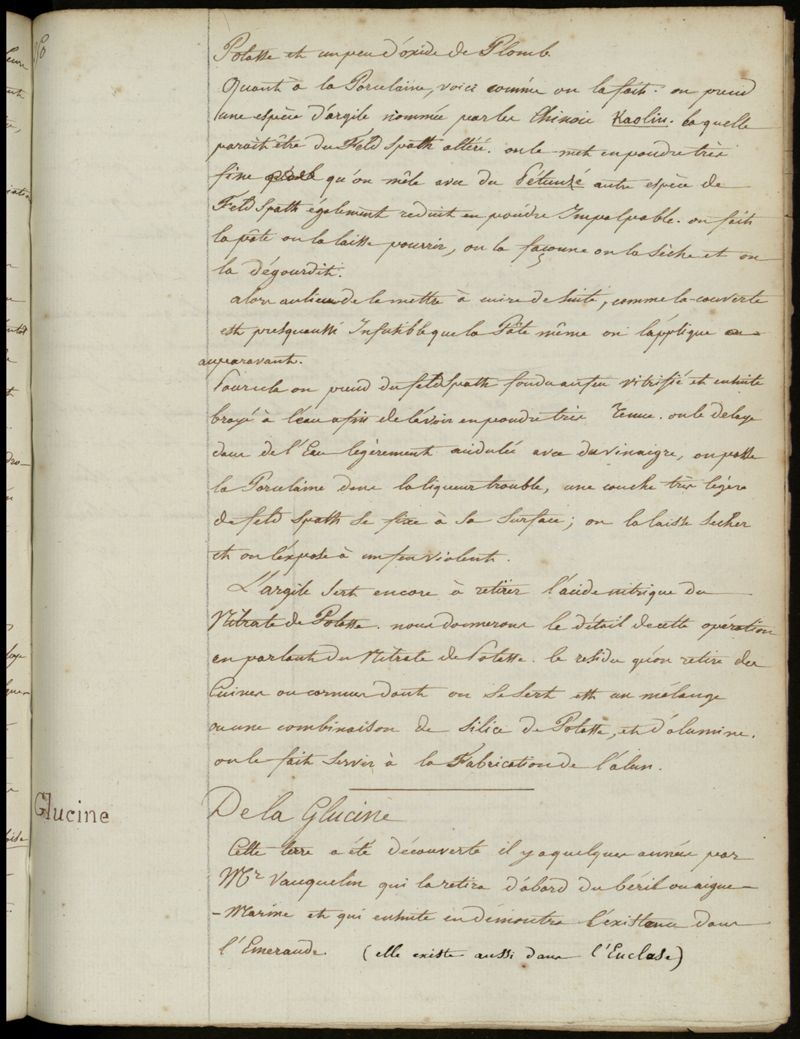 Potasse et un peu d'oxide de Plomb
Quant à la Porcelaine, voici comme on la fait. on prend
une espèce d'argile nommée par les Chinois Kaolin. laquelle
parait être du Feld Spath altéré. on le met en poudre très
fine qu'on mêle avec du Pétunzé autre espèce de
Feld Spath également reduit en poudre Impalpable. on fait
la pâte on la laisse pourrir, on la façonne on la Sèche et on
la dégourdit.
alors au lieu de le mettre à cuire de suite, comme la couverte
est presqu'aussi Infusible que la Pâte même on l'applique
auparavant.
Pour cela on prend du feld Spath fondu au feu vitrifié et ensuite
broyé à l'eau afin de l'avoir en poudre très Tenue. on le delaye
dans de l'Eau legèrement acidulée avec du vinaigre, on passe
la Porcelaine dans la liqueur trouble, une couche très légère
de feld Spath se fixe à sa surface; on la laisse secher
et on l'expose à un feu violent.
L'argile sert encore à retirer l'acide nitrique du
Nitrate de Potasse. nous donnerons le détail de cette opération
en parlant du Nitrate de Potasse. le residu qu'on retire des
Cuines ou cornues dont on se sert est un mélange
ou une combinaison de silice de Potasse, et d'alumine.
on le fait servir à la Fabrication de l'alun.
Glucine
De la Glucine
Cette terre a été découverte il y a quelques années par
Mr Vauquelin qui la retira d'abord du béril ou aigue-
-Marine et qui ensuite en démontra l'éxistence dans
l'Emeraude. (elle existe aussi dans l'Euclase)